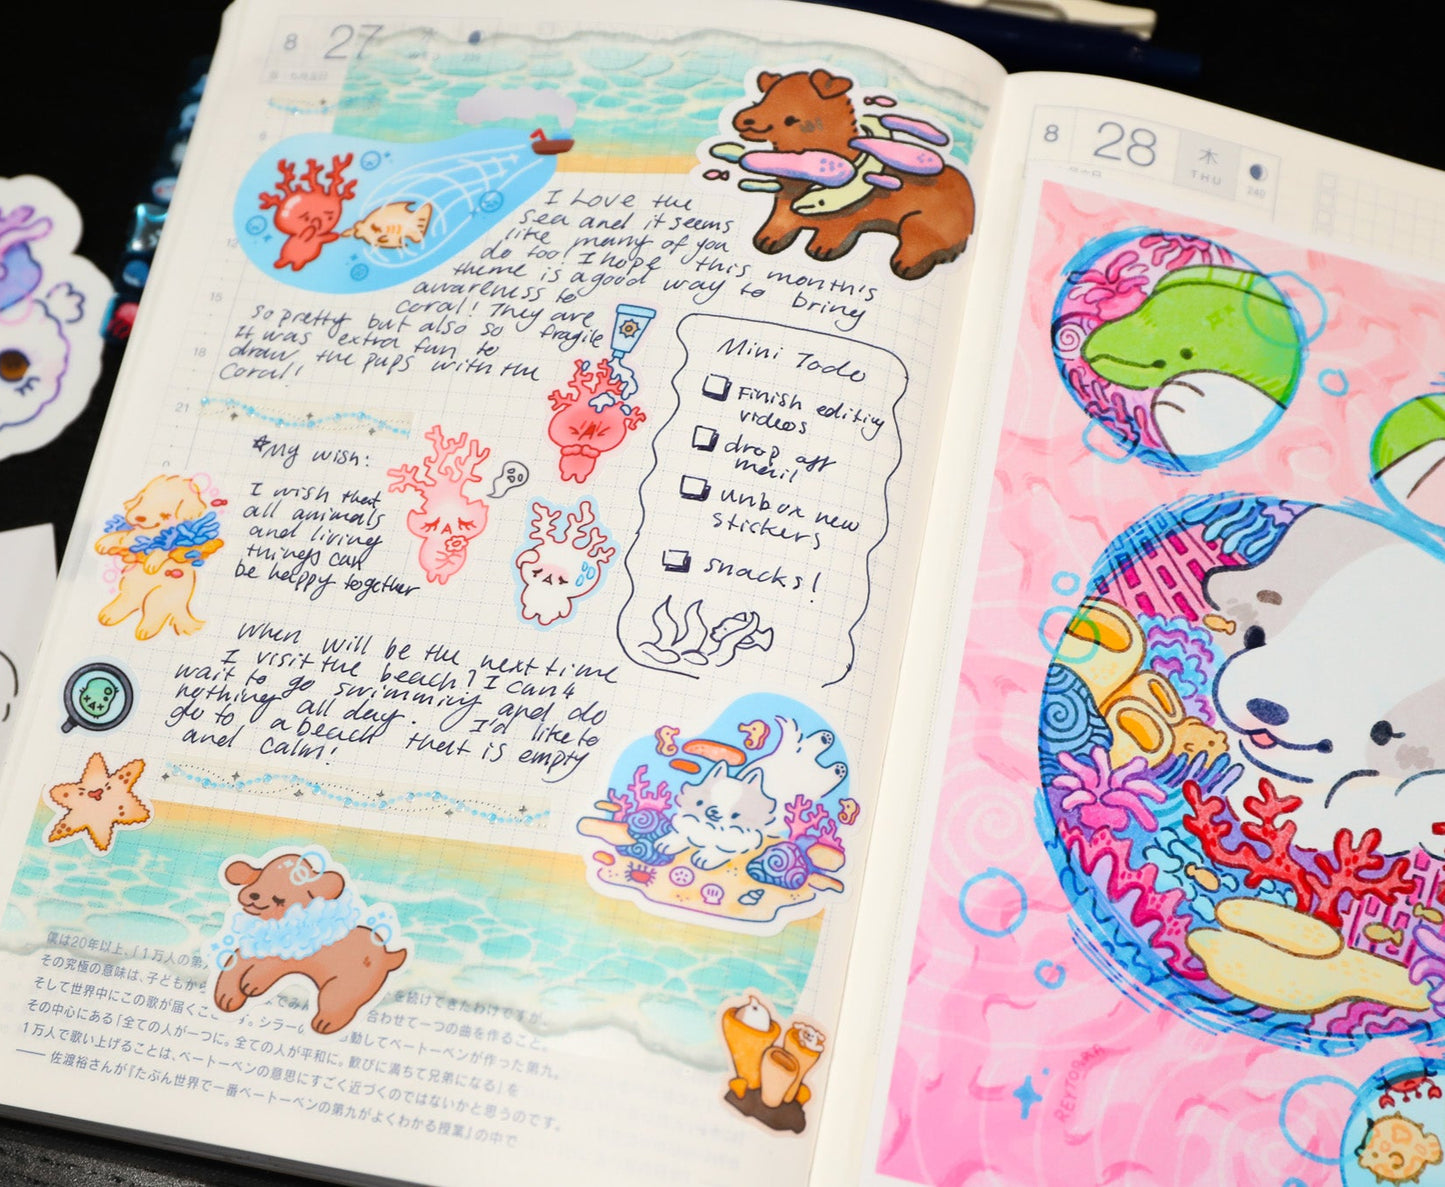 8 27
I Love the
sea and it seems
like many of you
do too! I hope this month's
theme is a good way to bring
awareness to
coral! They are
so pretty but also so fragile
It was extra fun to
draw the pups with the
coral!
Mini Todo
Finish editing
videos
drop off
mail
unbox new
stickers
snacks!
*My wish:
I wish that
all animals
and living
things can
be happy together
When will be the next time
I visit the beach? I can't
wait to go swimming and do
nothing all day. I'd like to
go to a beach that is empty
and calm!
15
18
21
僕は20年以上、「1万人の第
その究極の意味は、子どもから でみん を続けてきたわけですが、
そして世界中にこの歌が届くこ す。シラー 合わせて一つの曲を作ること。
その中心にある「全ての人が一つに。全ての人が平和に。歓びに満ちて兄弟になる」を
1万人で歌い上げることは、ベートーベンの意思にすごく近づくのではないかと思うのです。
── 佐渡裕さんが『たぶん世界で一番ベートーベンの第九がよくわかる授業』の中で
8 28 木
THU
240
REYTORRA